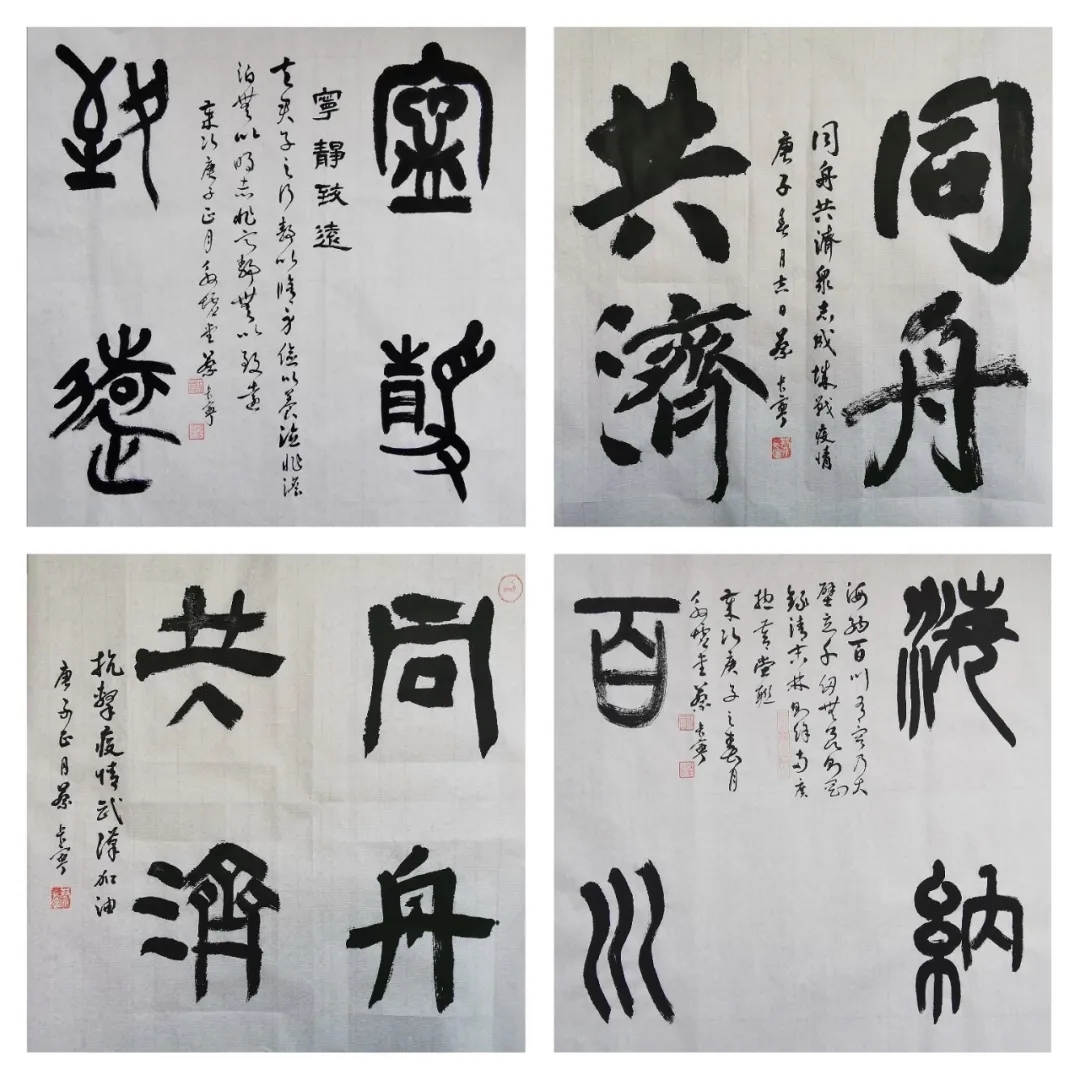 寧靜
寧靜致遠
夫君子之行靜以修身儉以養德非澹
泊無以明志非寧靜無以致遠
歲次庚子正月堂蔡
致遠
同舟
同舟共濟衆志成城戰疫情
庚子春月吉日蔡
共濟
同舟
共濟
抗擊疫情武漢加油
庚子正月蔡
海納
海納百川有容乃大
壁立千仞無欲則剛
錄清末林則徐两廣
總督堂聯
歲次庚子之春月
堂蔡
百川